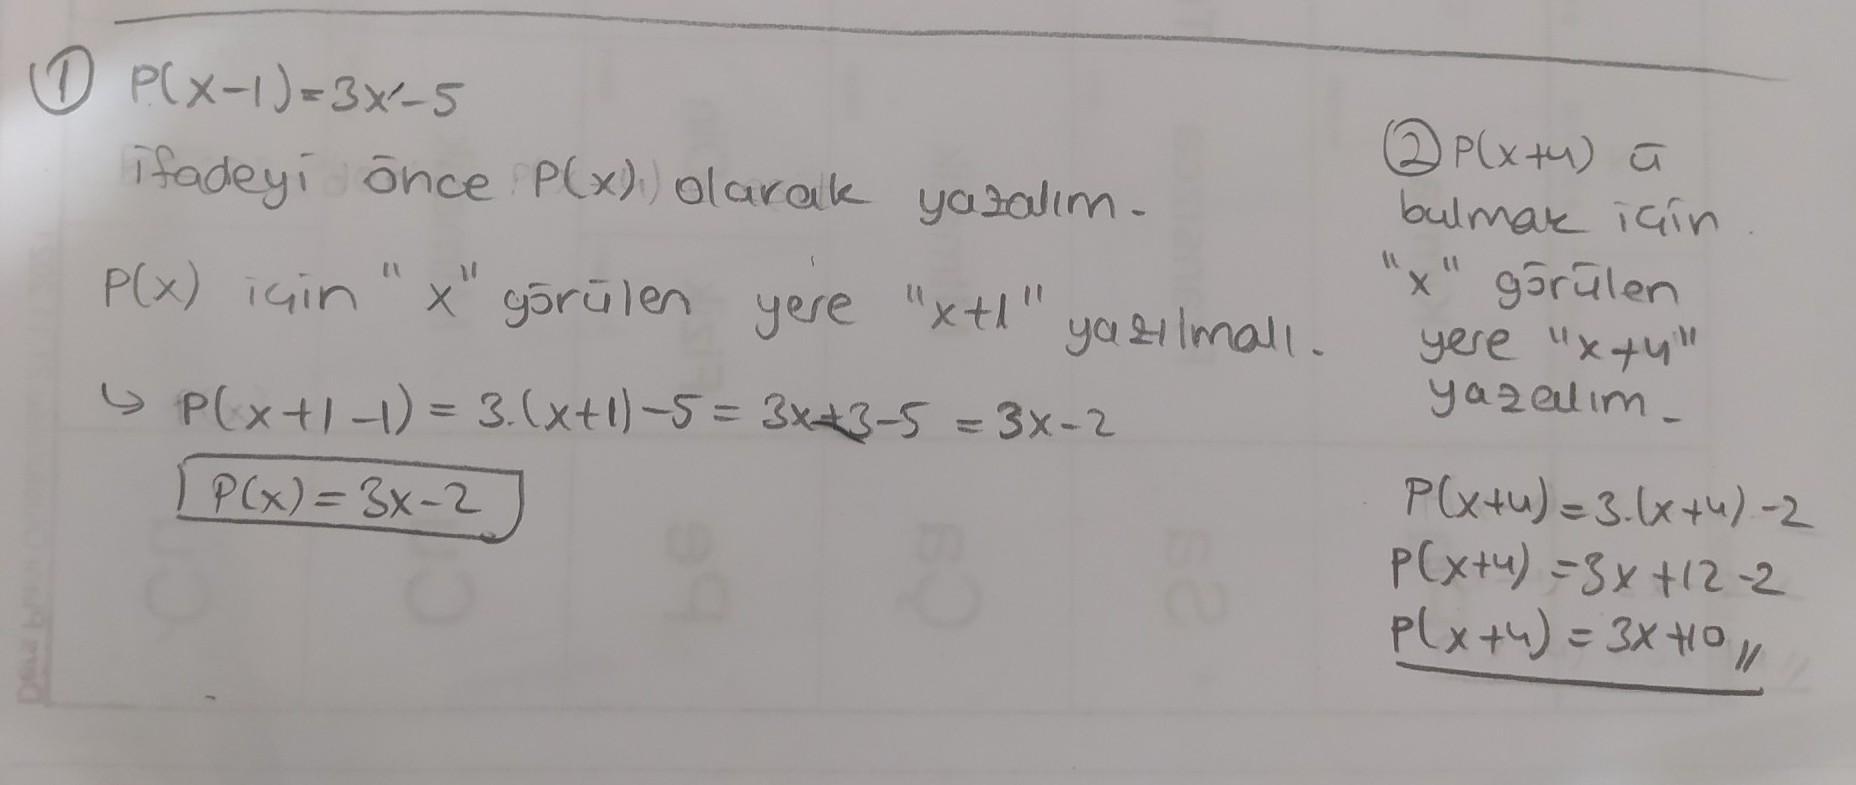 ① P(x-1)=3x-5
ifadeyi önce P(x) olarak yazalım.
P(x) için "x" görülen yere "x+1" yazılmalı.
↳ P(x+1-1) = 3.(x+1)-5 = 3x+3-5 = 3x-2
P(x) = 3x-2
② P(x+4) ü
bulmak için
"x" görülen
yere "x+4"
yazalım.
P(x+4) = 3.(x+4)-2
P(x+4) = 3x+12-2
P(x+4) = 3x+10 //